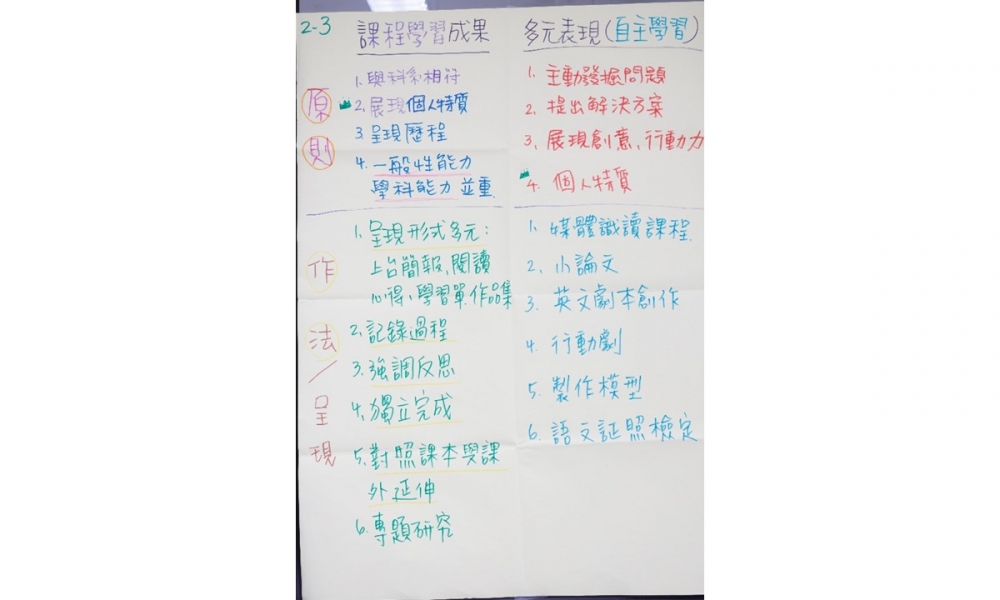 2-3
課程學習成果
多元表現(自主學習)
原則
1. 與科系相符
2. 展現個人特質
3. 呈現歷程
4. 一般性能力
學科能力 並重
1. 主動發掘問題
2. 提出解決方案
3. 展現創意、行動力
4. 個人特質
作法/呈現
1. 呈現形式多元:
上台簡報、閱讀
心得、學習單、作品集
2. 記錄過程
3. 強調反思
4. 獨立完成
5. 對照課本與課
外延伸
6. 專題研究
1. 媒體識讀課程
2. 小論文
3. 英文劇本創作
4. 行動劇
5. 製作模型
6. 語文証照檢定